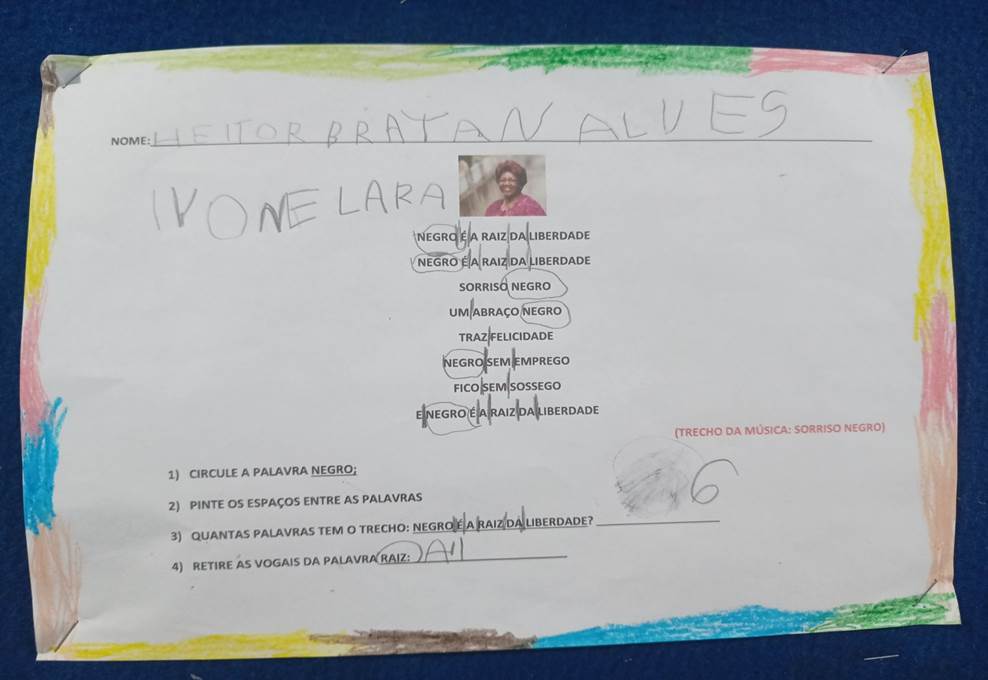 NOME: HEITOR BRAYAN ALVES
IVONE LARA
NEGRO É A RAIZ DA LIBERDADE
NEGRO É A RAIZ DA LIBERDADE
SORRISO NEGRO
UM ABRAÇO NEGRO
TRAZ FELICIDADE
NEGRO SEM EMPREGO
FICO SEM SOSSEGO
E NEGRO É A RAIZ DA LIBERDADE
(TRECHO DA MÚSICA: SORRISO NEGRO)
1) CIRCULE A PALAVRA NEGRO;
2) PINTE OS ESPAÇOS ENTRE AS PALAVRAS
3) QUANTAS PALAVRAS TEM O TRECHO: NEGRO É A RAIZ DA LIBERDADE? 6
4) RETIRE AS VOGAIS DA PALAVRA RAIZ: AI